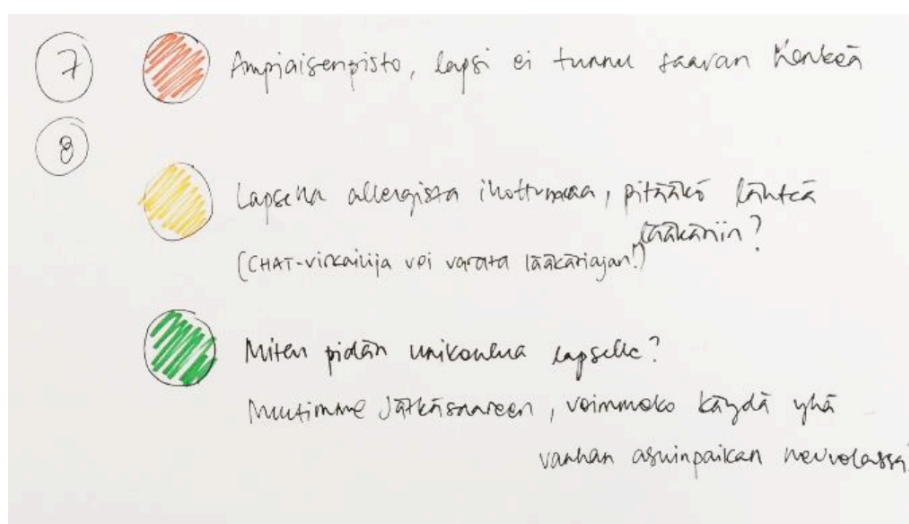 7
Ampiaisenpisto, lapsi ei tunnu saavan henkeä
8
Lapsella allergista ihottumaa, pitääkö lähteä
lääkäriin?
(CHAT-virkailija voi varata lääkäriajan!)
Miten pidän unikoulua lapselle?
Muutimme Jätkäsaareen, voimmeko käydä yhä
vanhan asuinpaikan neuvolassa?